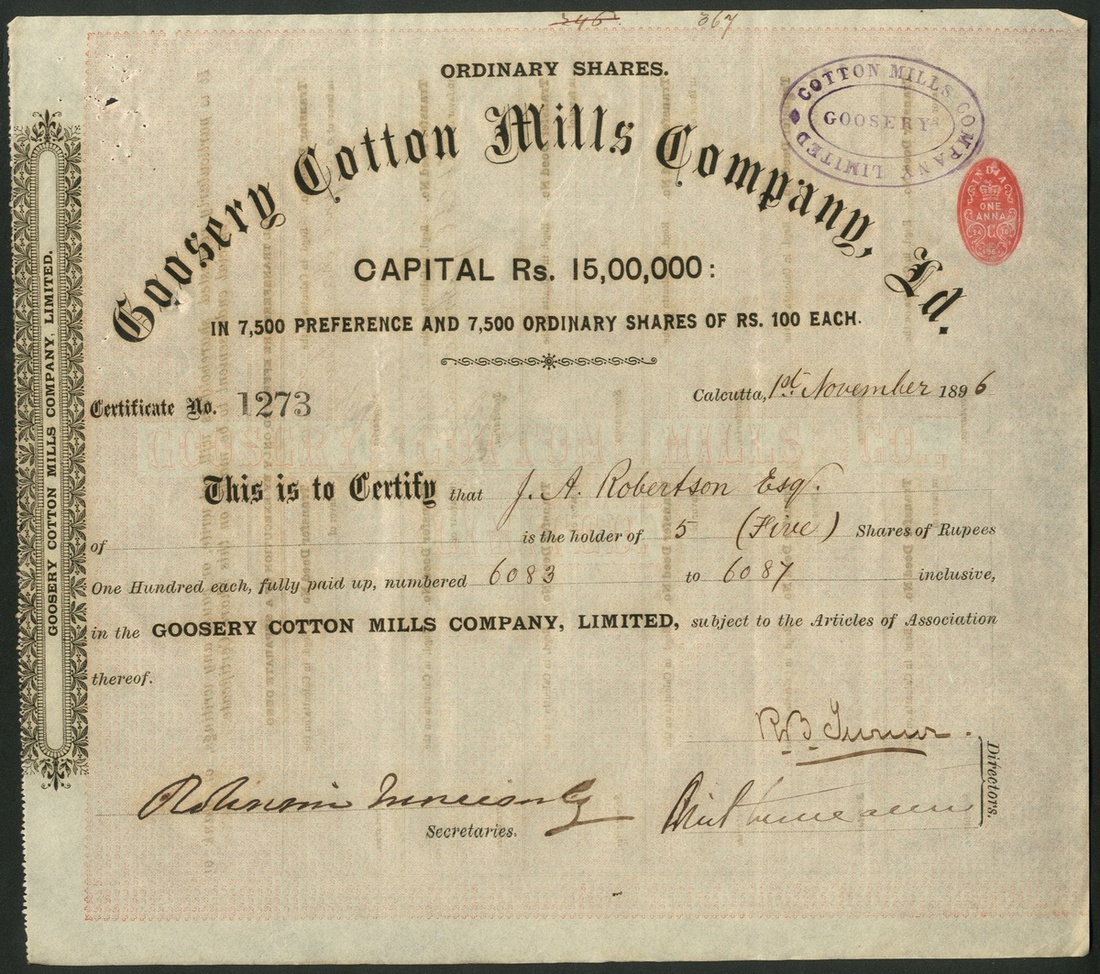 367
ORDINARY SHARES.
COTTON MILLS COMPANY LIMITED
GOOSERY
Goosery Cotton Mills Company, Ld.
INDIA
ONE
ANNA
CAPITAL Rs. 15,00,000:
IN 7,500 PREFERENCE AND 7,500 ORDINARY SHARES OF RS. 100 EACH.
Calcutta, 1st November 1896
Certificate No. 1273
GOOSERY COTTON MILLS CO.,
This is to Certify that J. A. Robertson Esq.
of is the holder of 5 (Five) Shares of Rupees
One Hundred each, fully paid up, numbered 6083 to 6087 inclusive,
in the GOOSERY COTTON MILLS COMPANY, LIMITED, subject to the Articles of Association
thereof.
R. B. Turner.
Directors.
Secretaries.
GOOSERY COTTON MILLS COMPANY, LIMITED.